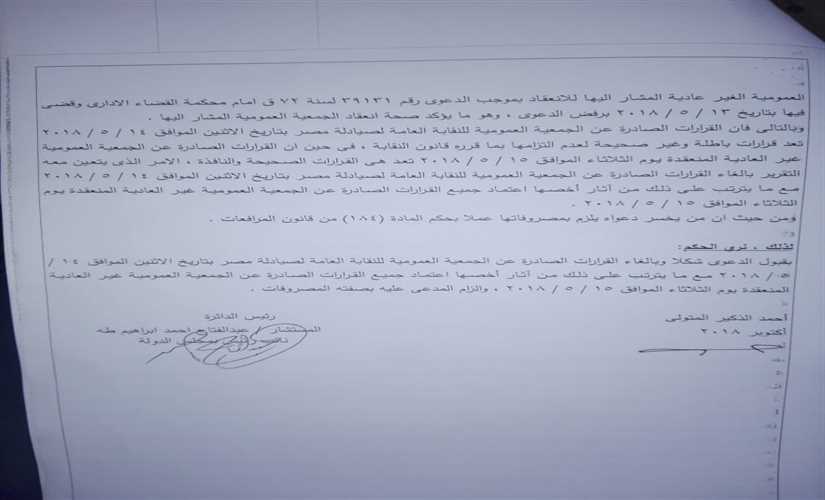 العمومية الغير عادية المشار اليها للانعقاد بموجب الدعوى رقم ٣٩١٣١ لسنة ٧٢ ق امام محكمة القضاء الادارى وقضى
فيها بتاريخ ١٣ / ٥ / ٢٠١٨ برفض الدعوى ، وهو ما يؤكد صحة انعقاد الجمعية العمومية المشار اليها .
وبالتالى فان القرارات الصادرة عن الجمعية العمومية للنقابة العامة لصيادلة مصر بتاريخ الاثنين الموافق ١٤ / ٥ / ٢٠١٨
تعد قرارات باطلة وغير صحيحة لعدم التزامها بما قرره قانون النقابة ، فى حين ان القرارات الصادرة عن الجمعية العمومية
غير العادية المنعقدة يوم الثلاثاء الموافق ١٥ / ٥ / ٢٠١٨ تعد هى القرارات الصحيحة والنافذة ، الامر الذى يتعين معه
التقرير بالغاء القرارات الصادرة عن الجمعية العمومية للنقابة العامة لصيادلة مصر بتاريخ الاثنين الموافق ١٤ / ٥ / ٢٠١٨
مع ما يترتب على ذلك من آثار أخصها اعتماد جميع القرارات الصادرة عن الجمعية العمومية غير العادية المنعقدة يوم
الثلاثاء الموافق ١٥ / ٥ / ٢٠١٨ .
ومن حيث ان من يخسر دعواه يلزم بمصروفاتها عملا بحكم المادة (١٨٤) من قانون المرافعات .
لذلك ، نرى الحكم:
بقبول الدعوى شكلا وبالغاء القرارات الصادرة عن الجمعية العمومية للنقابة العامة لصيادلة مصر بتاريخ الاثنين الموافق ١٤ /
٥ / ٢٠١٨ مع ما يترتب على ذلك من آثار أخصها اعتماد جميع القرارات الصادرة عن الجمعية العمومية غير العادية
المنعقدة يوم الثلاثاء الموافق ١٥ / ٥ / ٢٠١٨ ، والزام المدعى عليه بصفته المصروفات .
رئيس الدائرة
أحمد الذكير المتولى
المستشار / عبدالفتاح احمد ابراهيم طه
أكتوبر ٢٠١٨
نائب رئيس مجلس الدولة